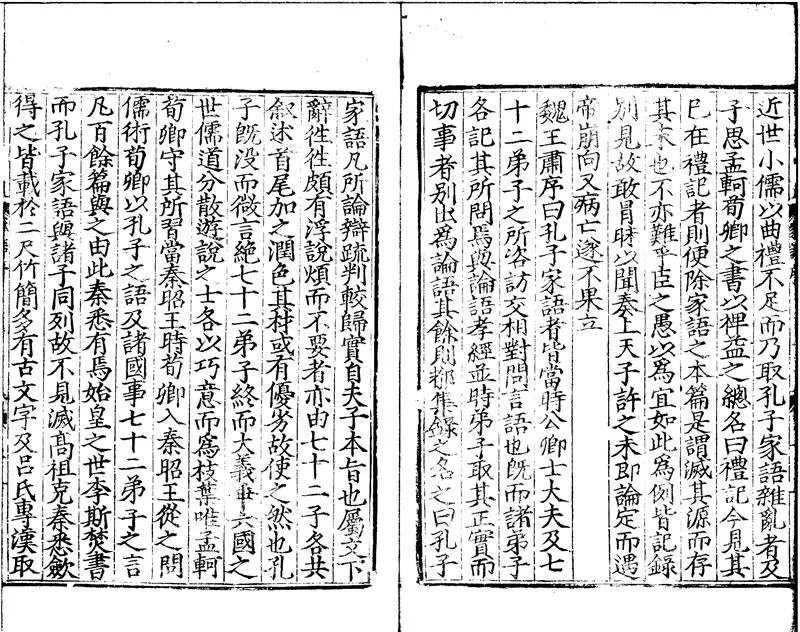 近世小儒以曲禮不足而乃取孔子家語雜亂者及
子思孟軻荀卿之書以裨益之總名曰禮記今見其
已在禮記者則便除家語之本篇是謂滅其源而存
其末也不亦難乎臣之愚以爲宜如此爲例皆記錄
別見故敢冒昧以聞奏上天子許之未即論定而遇
帝崩向又病亡遂不果立
魏王肅序曰孔子家語者皆當時公卿士大夫及七
十二弟子之所咨訪交相對問言語也旣而諸弟子
各記其所問焉與論語孝經並時弟子取其正實而
切事者別出爲論語其餘則都集錄之名之曰孔子
家語凡所論辯疏判較歸實自夫子本旨也屬文下
辭徃徃頗有浮說煩而不要者亦由七十二子各共
叙述首尾加之潤色其材或有優劣故使之然也孔
子旣没而微言絶七十二弟子終而大義乖六國之
世儒道分散遊說之士各以巧意而爲枝葉唯孟軻
荀卿守其所習當秦昭王時荀卿入秦昭王從之問
儒術荀卿以孔子之語及諸國事七十二弟子之言
凡百餘篇與之由此秦悉有焉始皇之世李斯焚書
而孔子家語與諸子同列故不見滅高祖克秦悉歛
得之皆載於二尺竹簡多有古文字及吕氏專漢取